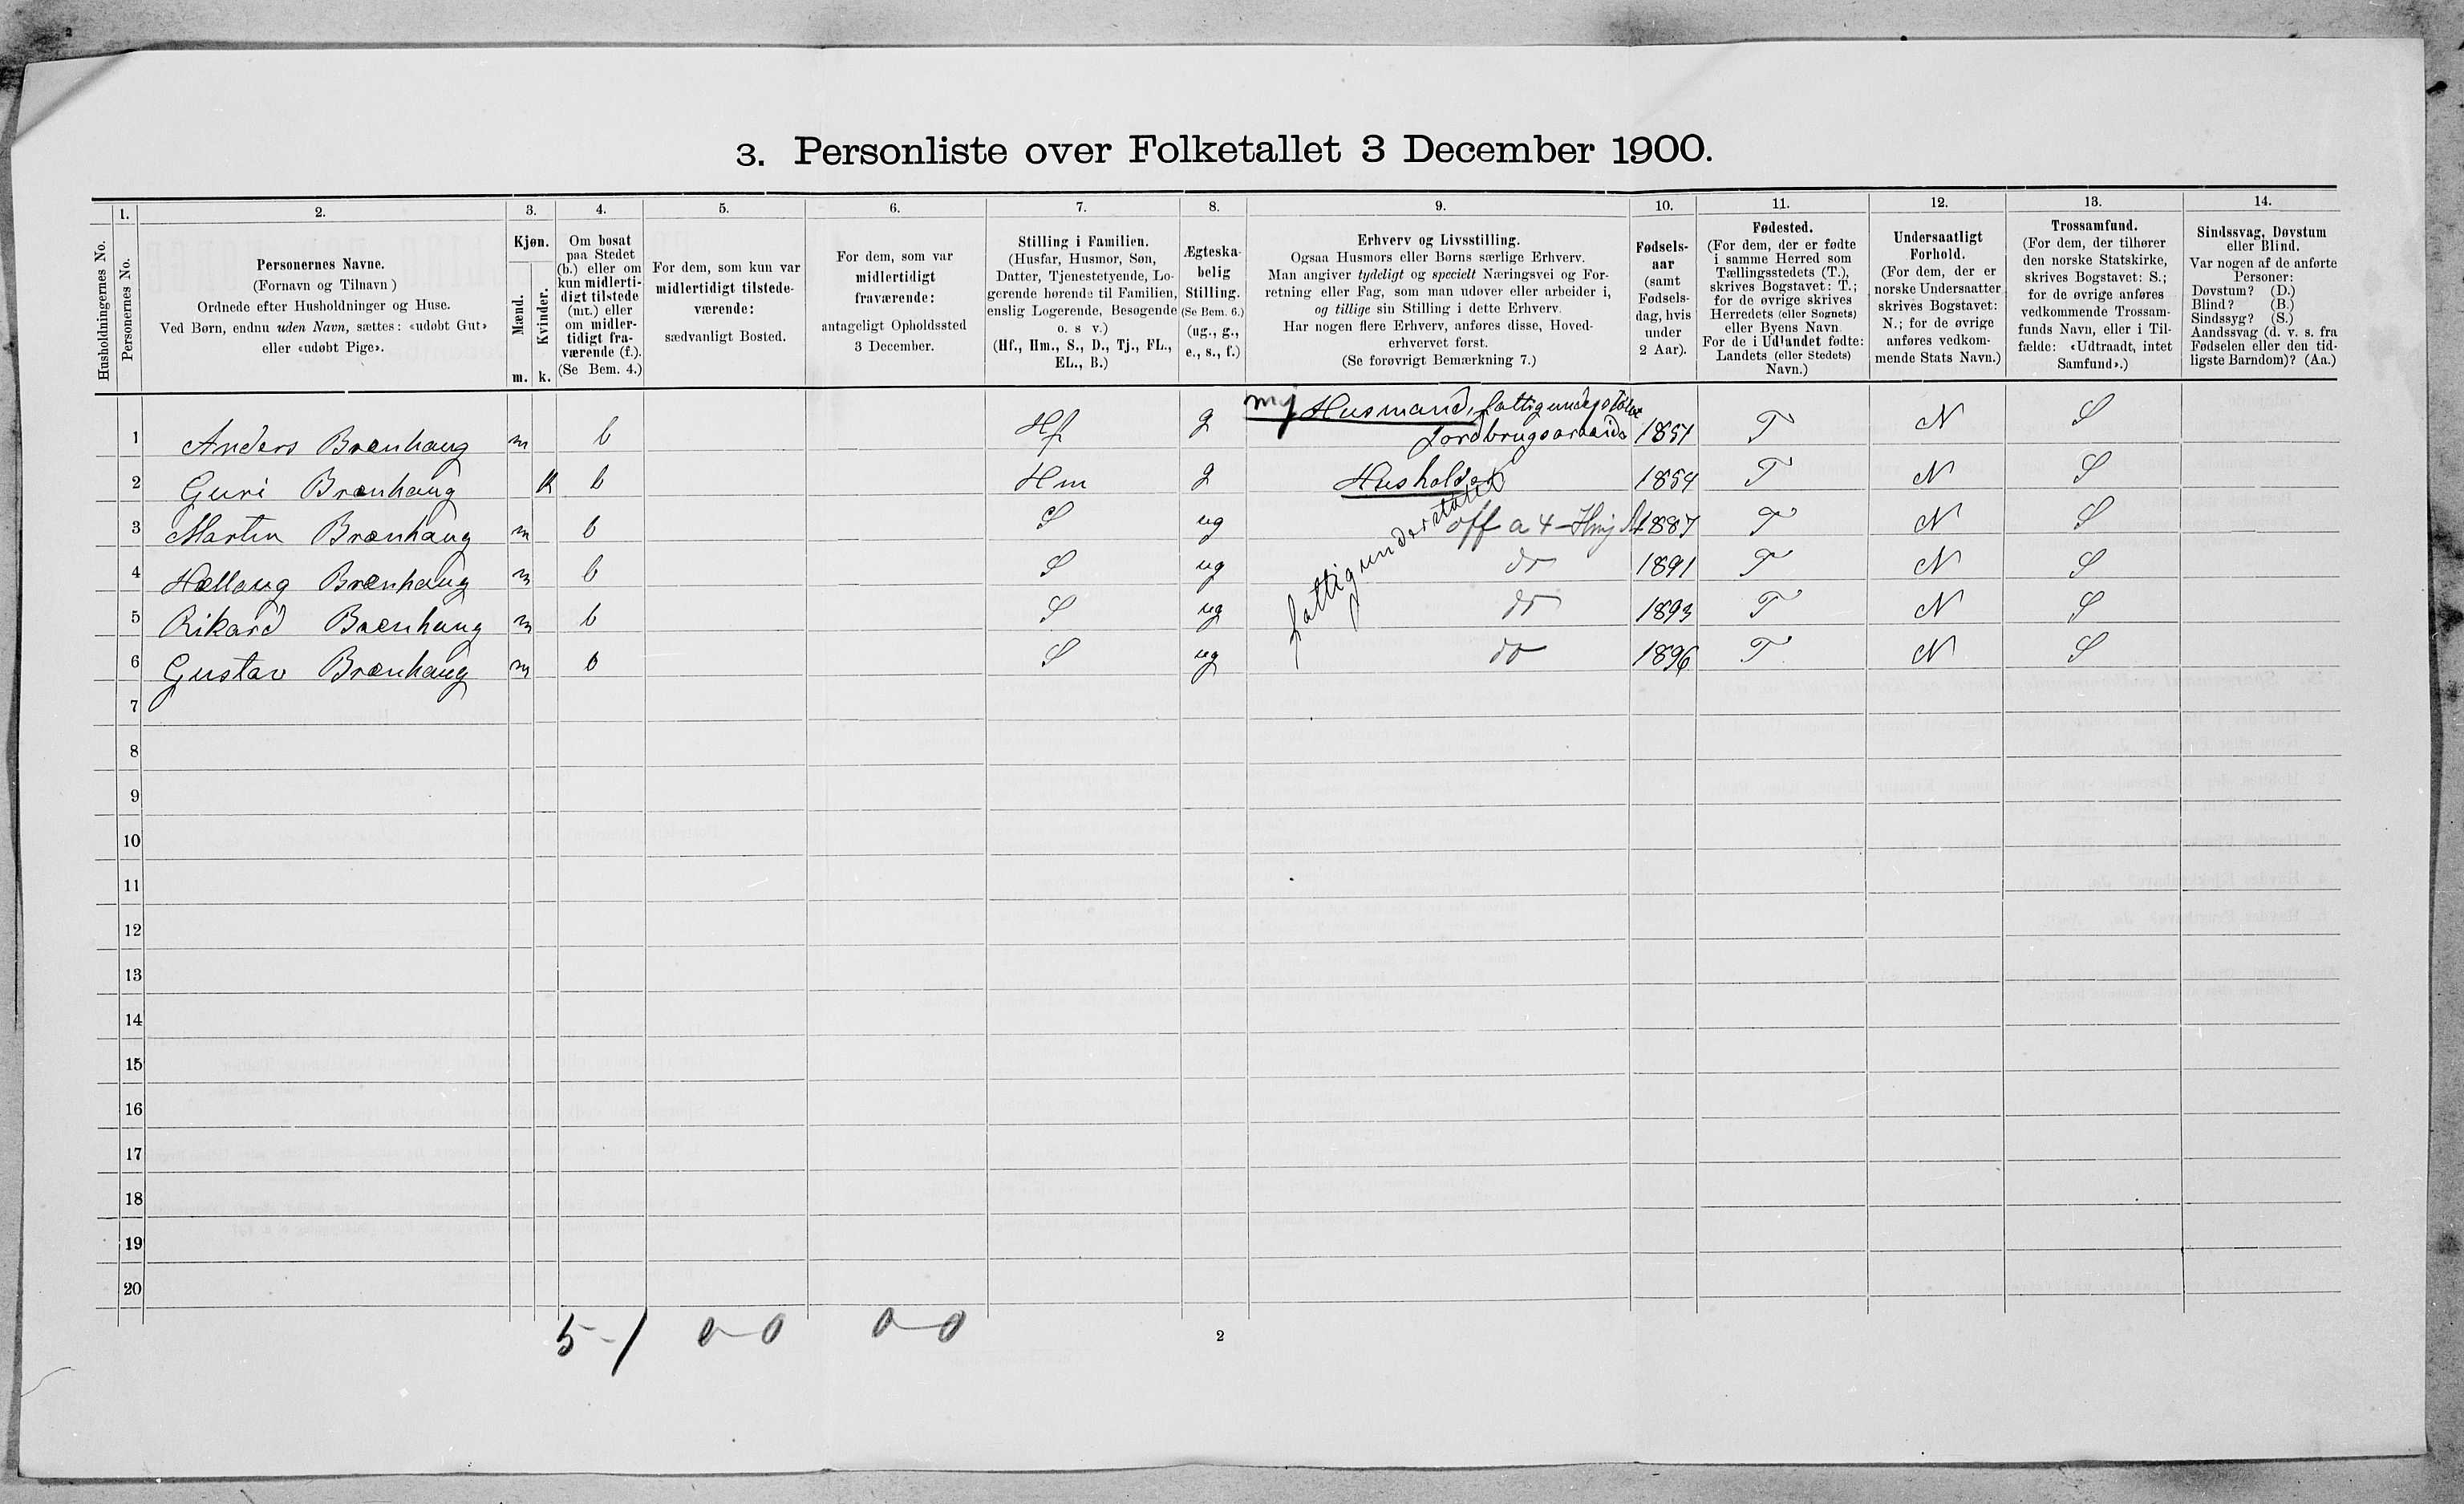 3. Personliste over Folketallet 3 December 1900.
Husholdningernes No.
1.
Personernes No.
2.
Personernes Navne.
(Fornavn og Tilnavn)
Ordnede efter Husholdninger og Huse.
Ved Børn, endnu uden Navn, sættes: «udøbt Gut»
eller «udøbt Pige».
3.
Kjøn.
Mænd.
Kvinder.
m. k.
4.
Om bosat
paa Stedet
(b.) eller om
kun midlerti-
digt tilstede
(mt.) eller
om midler-
tidigt fra-
værende (f.).
(Se Bem. 4.)
5.
For dem, som kun var
midlertidigt tilstede-
værende:
sædvanligt Bosted.
6.
For dem, som var
midlertidigt
fraværende:
antageligt Opholdssted
3 December.
7.
Stilling i Familien.
(Husfar, Husmor, Søn,
Datter, Tjenestetyende, Lo-
gerende hørende til Familien,
enslig Logerende, Besøgende
o. s v.)
(Hf., Hm., S., D., Tj., FL.,
EL., B.)
8.
Ægteska-
belig
Stilling.
(Se Bem. 6.)
(ug., g.,
e., s., f.)
9.
Erhverv og Livsstilling.
Ogsaa Husmors eller Børns særlige Erhverv.
Man angiver tydeligt og specielt Næringsvei og For-
retning eller Fag, som man udøver eller arbeider i,
og tillige sin Stilling i dette Erhverv.
Har nogen flere Erhverv, anføres disse, Hoved-
erhvervet først.
(Se forøvrigt Bemærkning 7.)
10.
Fødsels-
aar
(samt
Fødsels-
dag, hvis
under
2 Aar).
11.
Fødested.
(For dem, der er fødte
i samme Herred som
Tællingsstedets (T.),
skrives Bogstavet: T.;
for de øvrige skrives
Herredets (eller Sognets)
eller Byens Navn.
For de i Udlandet fødte:
Landets (eller Stedets)
Navn.)
12.
Undersaatligt
Forhold.
(For dem, der er
norske Undersaatter,
skrives Bogstavet:
N.; for de øvrige
anføres vedkom-
mende Stats Navn.)
13.
Trossamfund.
(For dem, der tilhører
den norske Statskirke,
skrives Bogstavet: S.;
for de øvrige anføres
vedkommende Trossam-
funds Navn, eller i Til-
fælde: «Udtraadt, intet
Samfund».)
14.
Sindssvag, Døvstum
eller Blind.
Var nogen af de anførte
Personer:
Døvstum? (D.)
Blind? (B.)
Sindssyg? (S.)
Aandssvag (d. v. s. fra
Fødselen eller den tid-
ligste Barndom)? (Aa.)
mj Husmand, fattigunderstøttet
1 Anders Brænhaug m b Hf g Jordbrugsarbeide 1851 T N S
2 Guri Brænhaug k b Hm g Husholder 1854 T N S
3 Martin Brænhaug m b S ug off a 4 - Hmj 1887 T N S
4 Hellaug Brænhaug m b S ug do 1891 T N S
5 Rikard Brænhaug m b S ug do 1893 T N S
6 Gustav Brænhaug m b S ug do 1896 T N S
fattigunderstøttet
7
8
9
10
11
12
13
14
15
16
17
18
19
20
5-1 0-0 0-0
2